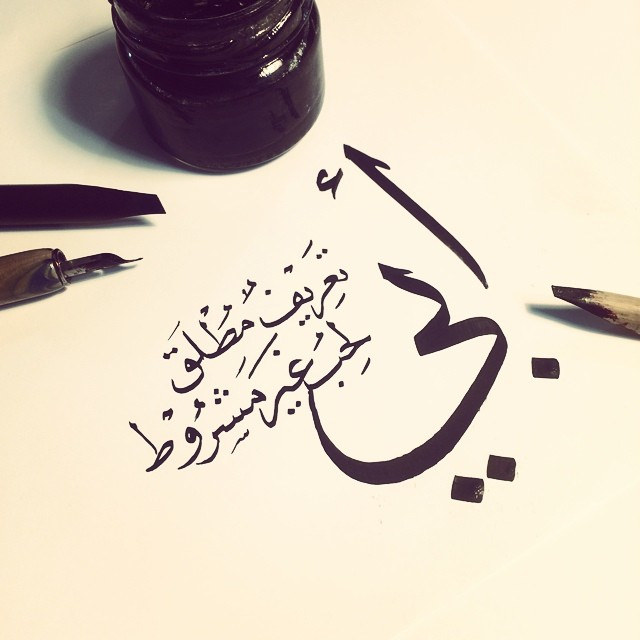 أبي
تعريف مُطْلَق
لِحُب غير مشرُوْط